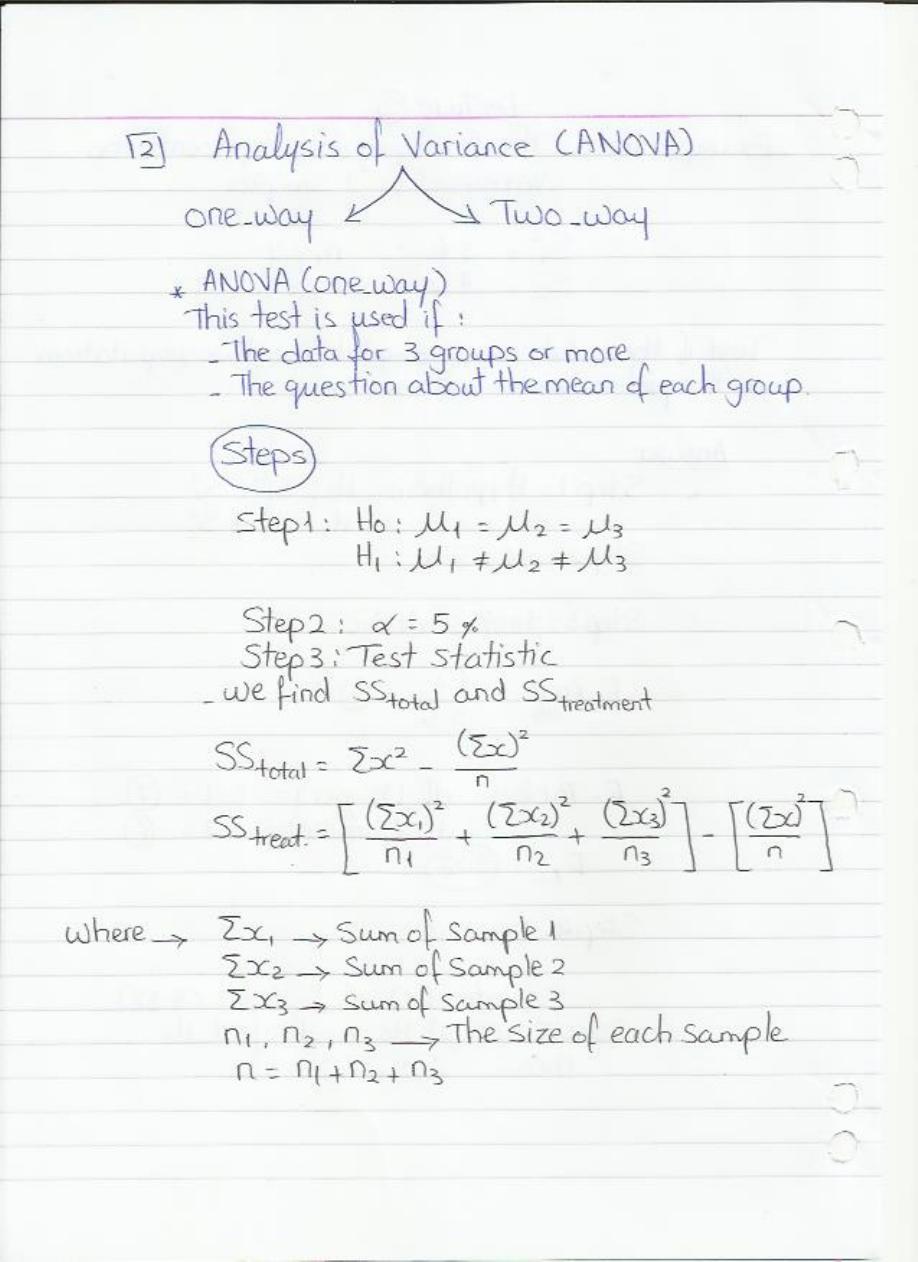 2 Analysis of Variance (ANOVA)
one-way Two-way
* ANOVA (one-way)
This test is used if :
- The data for 3 groups or more
- The question about the mean of each group.
Steps
Step1: H₀ : μ₁ = μ₂ = μ₃
H₁ : μ₁ ≠ μ₂ ≠ μ₃
Step2: α = 5 %
Step3: Test statistic
- we find SS total and SS treatment
SS total = Σx² - (Σx)²/n
SS treat. = [(Σx₁)²/n₁ + (Σx₂)²/n₂ + (Σx₃)²/n₃] - [(Σx)²/n]
where → Σx₁ → Sum of Sample 1
Σx₂ → Sum of Sample 2
Σx₃ → Sum of Sample 3
n₁, n₂, n₃ → The size of each sample
n = n₁ + n₂ + n₃